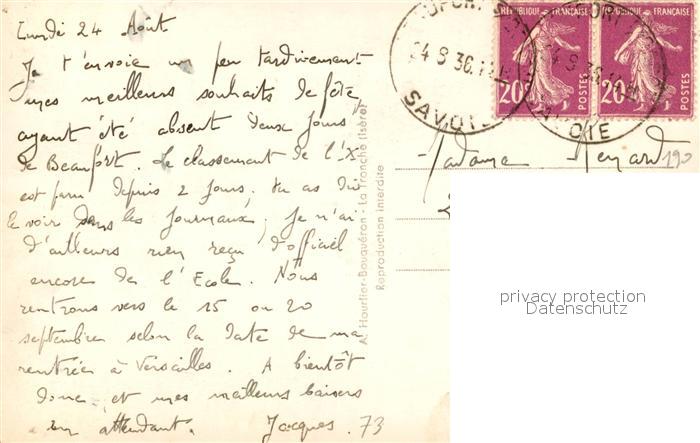 Lundi 24 Août
Je t'envoie un peu tardivement
mes meilleurs souhaits de fête
ayant été absent deux jours
de Beaufort. Le classement de l'X
est paru depuis 2 jours. tu as dû
le voir dans les journaux, je n'ai
d'ailleurs rien reçu d'officiel
encore de l'Ecole. Nous
rentrons vers le 15 ou 20
septembre selon la date de ma
rentrée à Versailles. A bientôt
donc et mes meilleurs baisers
en attendant. Jacques. 73
A. Hourtier-Bouquéron - La Tronche (Isère)
Reproduction interdite
RÉPUBLIQUE FRANÇAISE
20
POSTES
RÉPUBLIQUE FRANÇAISE
20
POSTES
24 8 36
SAVOIE
SAVOIE
Madame
190
privacy protection
Datenschutz